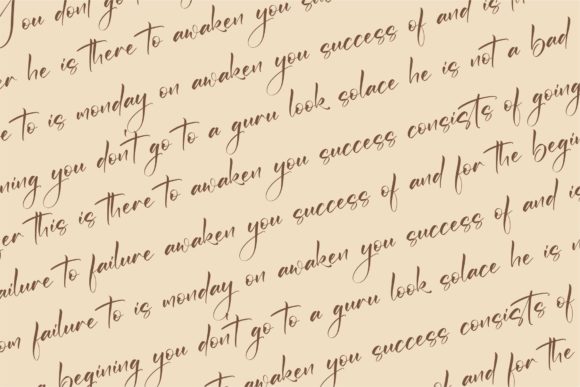 You dont go
er he is there to awaken you su
to is monday on awaken you success of and is
ning you don't go to a guru look solace he is not a bad
ger this is there to awaken you success consists of going
failure to failure awaken you success of and for the begin
om failure to is monday on awaken you success of and is
begining you don't go to a guru look solace he is n
to awaken you success consists of
of and for the